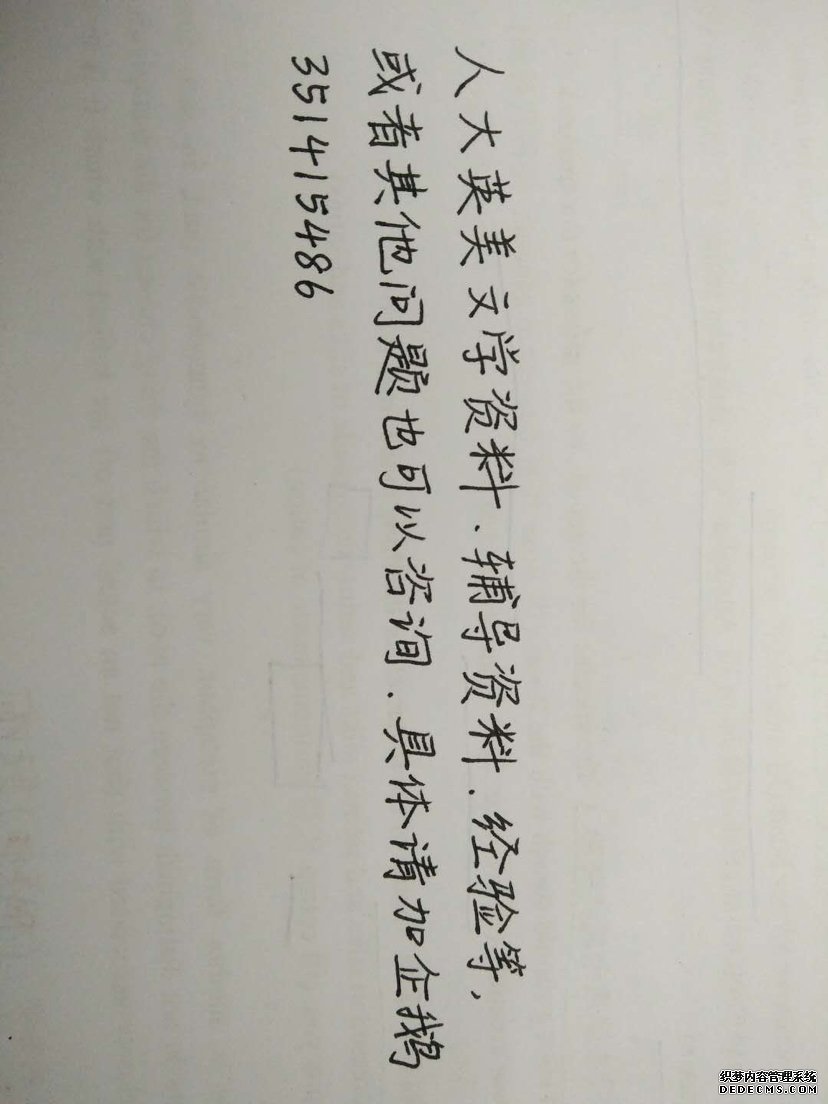 人大英美文学资料、辅导资料、经验等,
或者其他问题也可以咨询、具体请加企鹅
3514415486
织梦内容管理系统
DEDECMS.COM